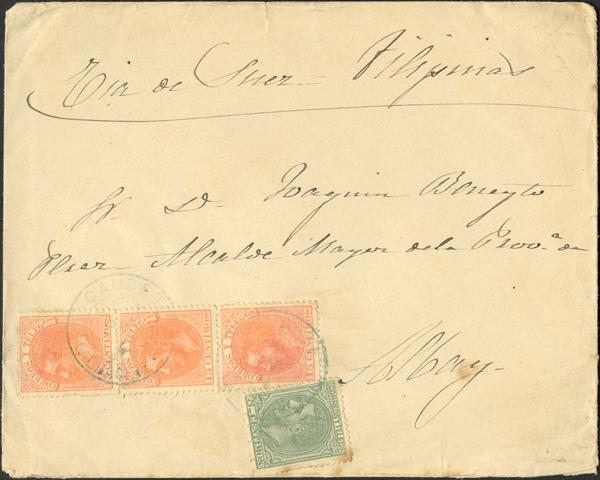 Via de Suez = Filipinas
Sr. D. Joaquin Beneyto
Alcalde Mayor de la Prov.ª de
Albay.
CAUDETE
CORREOS Y TELEGFOS
15 CENTIMOS
CORREOS Y TELEGFOS
15 CENTIMOS
CORREOS Y TELEGFOS
15 CENTIMOS
CORREOS Y TELEGFOS